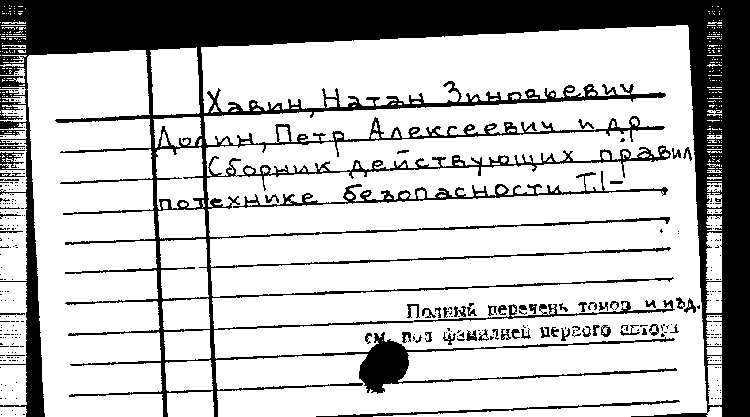 Хавин, Натан Зиновьевич
Долин, Петр Алексеевич и др
Сборник действующих правил
по технике безопасности Т.1-
Полный перечень томов и изд.
см. под фамилией первого автора